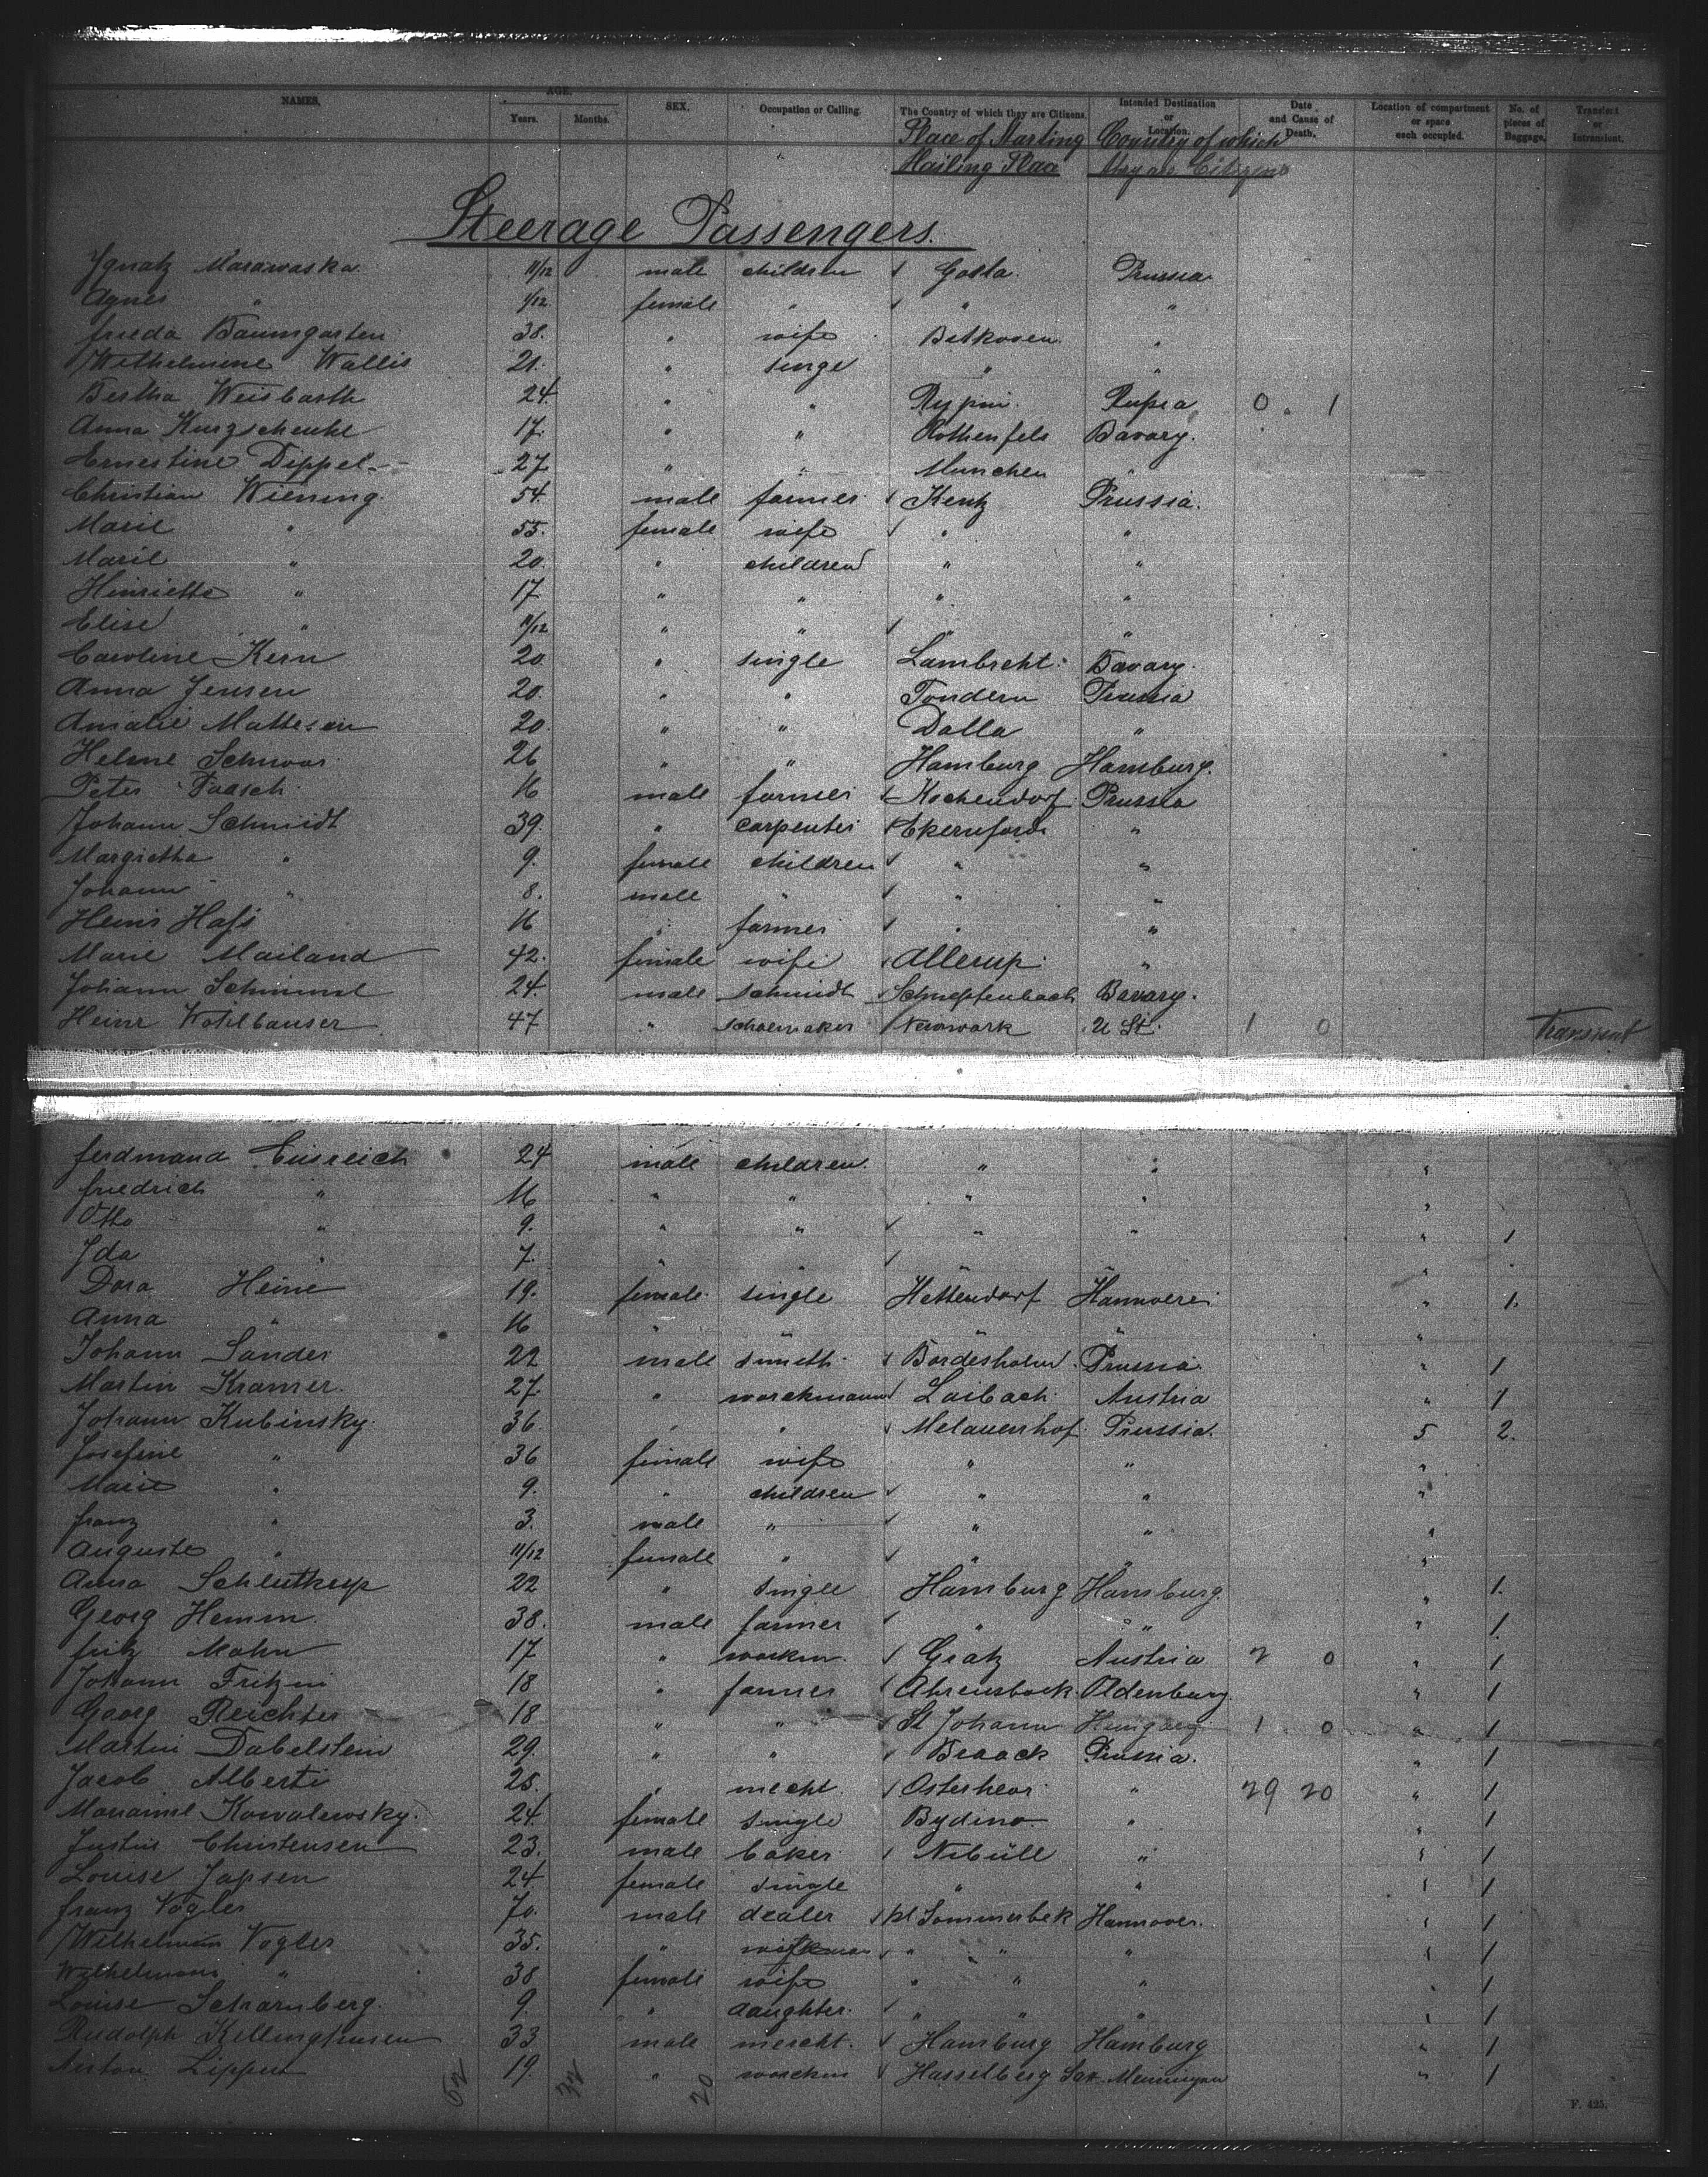 NAMES. AGE. Years. Months. SEX. Occupation or Calling. The Country of which they are Citizens. Intended Destination or Location. Date and Cause of Death. Location of compartment or space each occupied. No. of pieces of Baggage. Transient or Intransient.
Place of Starting Country of which
Hailing Place they are Citizens
Steerage Passengers.
Ignatz Marawaska 11/12 male children Prussia
Agnes " 1/12 female " " "
frieda Baumgarten 38. " wife Bitkowen "
Wilhelmine Wallis 21. " singe " "
Bertha Weisbarth 24 " " Rypin Rußia 0 " 1
Anna Kurzschenkel 17. " " Rothenfels Bavary.
Ernestine Dippel 27 " " Munchen "
Christian Wiening 54. male farmer Kentz Prussia.
Marie " 55. female wife " "
Marie " 20. " children " "
Hinriette " 17 " " " "
Elise " 11/12 " " " "
Caroline Kern 20. " single Lambreht Bavary.
Anna Jensen 20. " " Tondern Prussia
Amalie Mattesen 20. " " Dolla "
Helene Schwoor 26 " " Hamburg Hamburg.
Peter Paasch 16 male farmer Kochendorf Prussia
Johann Schmidt 39. " carpenter Ekernforde "
Margretha " 9. female children " "
Johann " 8. male " " "
Heinr Haß 16 " farmer " "
Marie Mailand 42. female wife Allerup "
Johann Schimmel 24. male schmidt Schneppenbach Bavary.
Heinr Wohlhauser 47 " schoemaker Newwark U St. 1 0 Transient
ferdinand Eisreich 24 male children " " "
friedrich " 16 " " " " "
Otto " 9. " " " " " 1
Ida " 7. " " " " "
Dora Heine 19. female single Hettendorf Hannover " 1.
Anna " 16 " " " " "
Johann Sander 22 male smith Bordesholm Prussia. " 1
Martin Kramer. 27. " workmann Laibach Austria " 1
Johann Kubinsky. 36. " " Melauenhof Prussia. 5 2.
Josefine " 36 female wife " " "
Marie " 9. " children " " "
franz " 3. male " " " "
Auguste " 11/12 female " " " "
Anna Schlutkup 22 " single Hamburg Hamburg. " 1.
Georg Hemm. 38. male farmer " " " 1.
fritz Mohn 17 " workm. Gratz Austria 2 0 " 1
Johann 18 " farmer Ahrensbock Oldenburg. " 1
Georg Reichter 18 " " St Johann Hungary 1 0 " 1
Martin Dabelstein 29. " " Braack Prussia. " 1
Jacob Alberti 25. " mecht. " 29 20 " 1
Mariamne Kowalewsky. 24. female single Bydino " " 1
Justus Christensen 23. male baker Nibüll " " 1
Louise Japsen 24. female single " " " 1
franz Vogler 70. male dealer kl Sommerbek Hannover. " 1
Wilhelmm Vogler 35. " " " " " 1
Wilhelmine " 38 female wife " " " " 1
Louise Scharnberg. 9. " daughter. " " " " 1
Rudolph Kellinghusen 33 male mercht. Hamburg Hamburg " 1
Anton Lippert 19. " workm Hasselberg Sax. Meiningen " 1
52 32 20
F. 425.